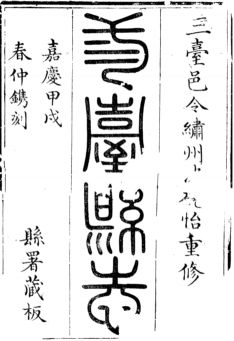 三臺邑令繡州怡重修
三臺縣志
嘉慶甲戌
春仲鐫刻
縣署藏板